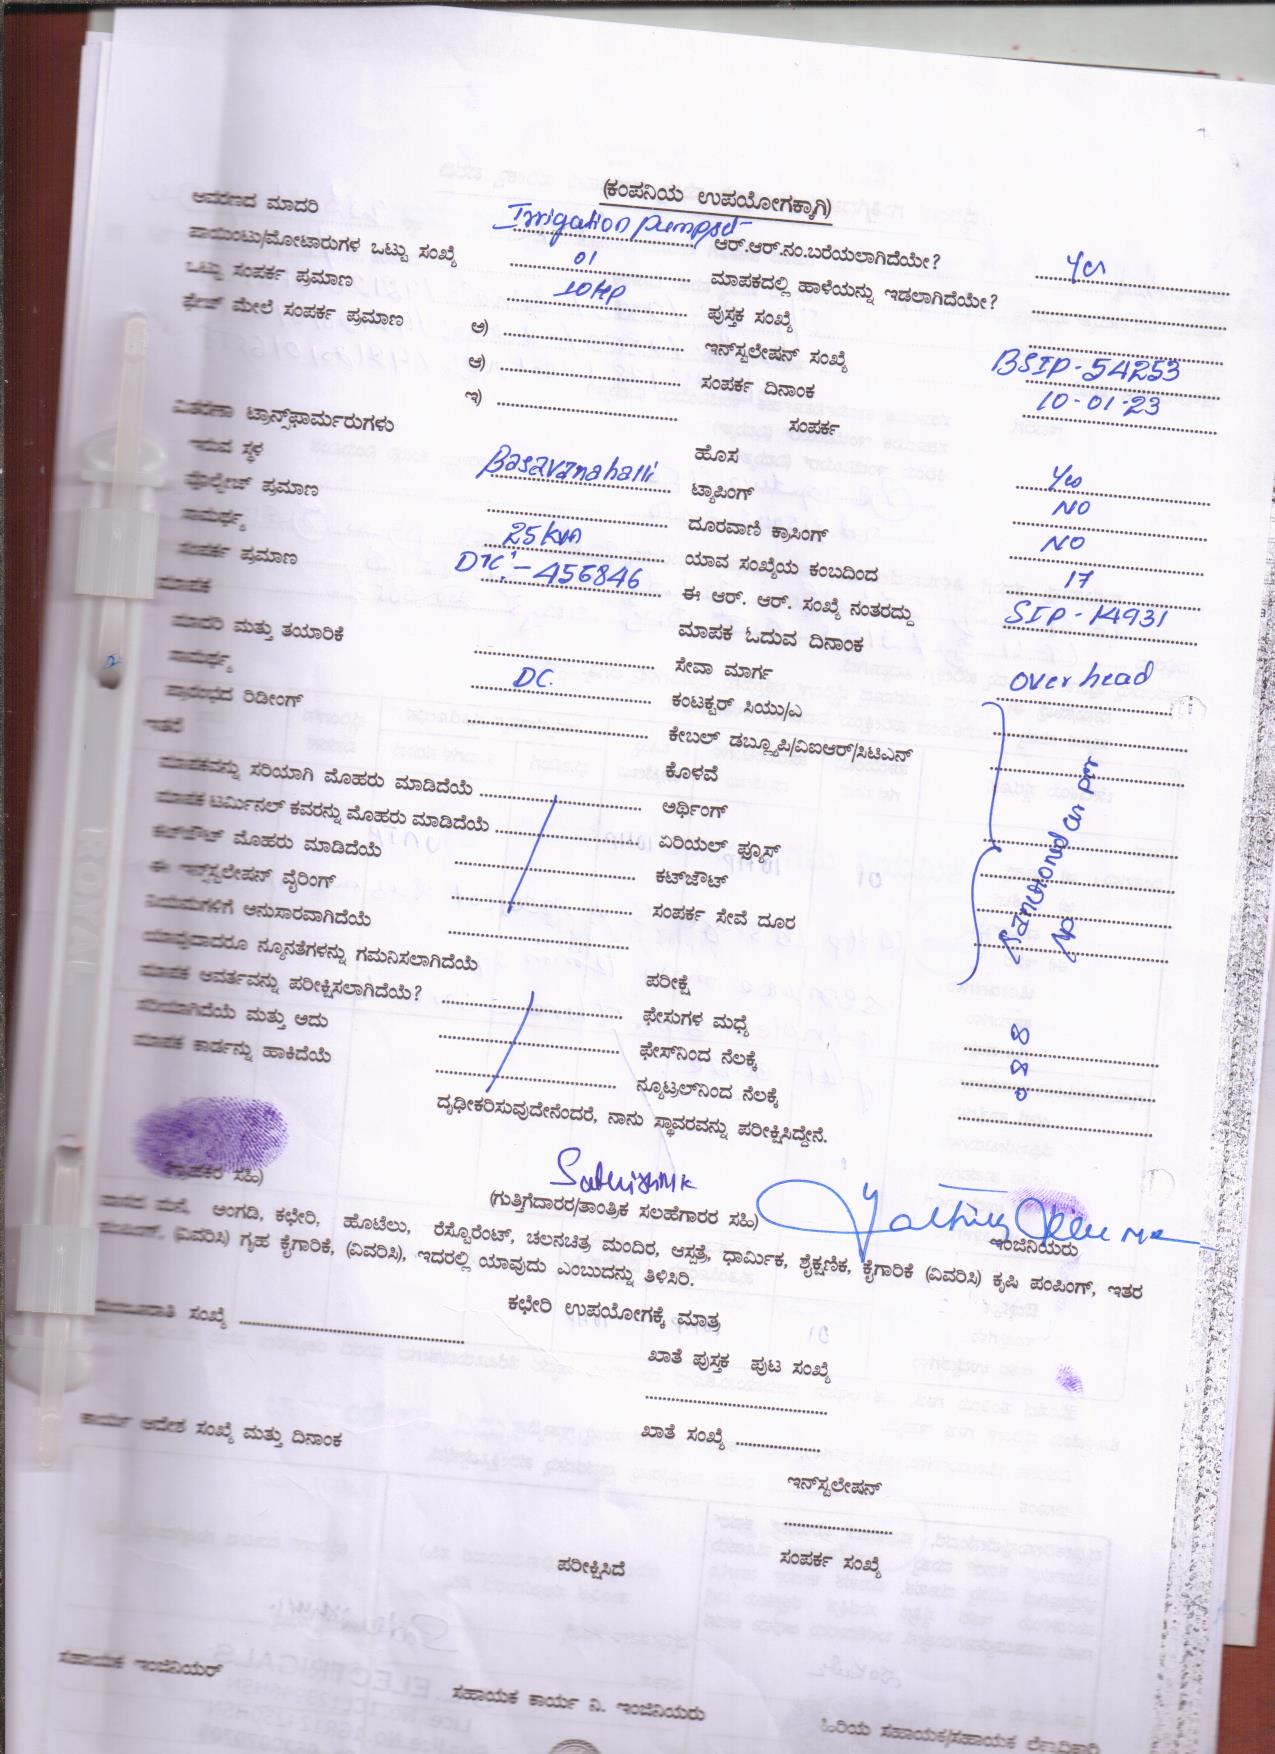 (ಕಂಪನಿಯ ಉಪಯೋಗಕ್ಕಾಗಿ)
ಆವರಣದ ಮಾದರಿ Irrigation Pumpset ಆರ್.ಆರ್.ನಂ.ಬರೆಯಲಾಗಿದೆಯೇ? Yes
ಪಾಯಿಂಟು/ಮೋಟಾರುಗಳ ಒಟ್ಟು ಸಂಖ್ಯೆ 01 ಮಾಪಕದಲ್ಲಿ ಹಾಳೆಯನ್ನು ಇಡಲಾಗಿದೆಯೇ?
ಒಟ್ಟು ಸಂಪರ್ಕ ಪ್ರಮಾಣ 10HP ಪುಸ್ತಕ ಸಂಖ್ಯೆ
ಫೇಜ್ ಮೇಲೆ ಸಂಪರ್ಕ ಪ್ರಮಾಣ ಅ) ಇನ್‌ಸ್ಟಲೇಷನ್ ಸಂಖ್ಯೆ BSIP-54253
ಆ) ಸಂಪರ್ಕ ದಿನಾಂಕ 10-01-23
ಇ) ಸಂಪರ್ಕ
ವಿತರಣಾ ಟ್ರಾನ್ಸ್‌ಫಾರ್ಮರುಗಳು
ಇರುವ ಸ್ಥಳ Basavanahalli ಹೊಸ Yes
ವೋಲ್ಟೇಜ್ ಪ್ರಮಾಣ ಟ್ಯಾಪಿಂಗ್ NO
ಸಾಮರ್ಥ್ಯ 25KVA ದೂರವಾಣಿ ಕ್ರಾಸಿಂಗ್ NO
ಸಂಪರ್ಕ ಪ್ರಮಾಣ DTC:-456846 ಯಾವ ಸಂಖ್ಯೆಯ ಕಂಬದಿಂದ 17
ಮಾಪಕ ಈ ಆರ್. ಆರ್. ಸಂಖ್ಯೆ ನಂತರದ್ದು SIP-14931
ಮಾದರಿ ಮತ್ತು ತಯಾರಿಕೆ ಮಾಪಕ ಓದುವ ದಿನಾಂಕ
ಸಾಮರ್ಥ್ಯ DC ಸೇವಾ ಮಾರ್ಗ overhead
ಪ್ರಾರಂಭದ ರಿಡೀಂಗ್ ಕಂಟಕ್ಟರ್ ಸಿಯು/ಎ
ಇತರೆ ಕೇಬಲ್ ಡಬ್ಲ್ಯೂಪಿ/ವಿಐಆರ್/ಸಿಟಿಎನ್
ಕೊಳವೆ
ಮಾಪಕವನ್ನು ಸರಿಯಾಗಿ ಮೊಹರು ಮಾಡಿದೆಯೆ ಅರ್ಥಿಂಗ್
ಮಾಪಕ ಟರ್ಮಿನಲ್ ಕವರನ್ನು ಮೊಹರು ಮಾಡಿದೆಯೆ ಏರಿಯಲ್ ಫ್ಯೂಸ್
ಕಟ್‌ಔಟ್ ಮೊಹರು ಮಾಡಿದೆಯೆ ಕಟ್‌ಔಟ್
ಈ ಇನ್‌ಸ್ಟಲೇಷನ್ ವೈರಿಂಗ್ ಸಂಪರ್ಕ ಸೇವೆ ದೂರ
Sanctioned as per
ನಿಯಮಗಳಿಗೆ ಅನುಸಾರವಾಗಿದೆಯೆ
ಯಾವುದಾದರೂ ನ್ಯೂನತೆಗಳನ್ನು ಗಮನಿಸಲಾಗಿದೆಯೆ ಪರೀಕ್ಷೆ
ಮಾಪಕ ಆವರ್ತವನ್ನು ಪರೀಕ್ಷಿಸಲಾಗಿದೆಯೆ? ಫೇಸುಗಳ ಮಧ್ಯೆ
ಸರಿಯಾಗಿದೆಯೆ ಮತ್ತು ಅದು ಫೇಸ್‌ನಿಂದ ನೆಲಕ್ಕೆ
ಮಾಪಕ ಕಾರ್ಡನ್ನು ಹಾಕಿದೆಯೆ ನ್ಯೂಟ್ರಲ್‌ನಿಂದ ನೆಲಕ್ಕೆ
ದೃಢೀಕರಿಸುವುದೇನೆಂದರೆ, ನಾನು ಸ್ಥಾವರವನ್ನು ಪರೀಕ್ಷಿಸಿದ್ದೇನೆ.
ಗ್ರಾಹಕರ ಸಹಿ) (ಗುತ್ತಿಗೆದಾರರ/ತಾಂತ್ರಿಕ ಸಲಹೆಗಾರರ ಸಹಿ) ಇಂಜಿನಿಯರು
ವಾಸದ ಮನೆ, ಅಂಗಡಿ, ಕಛೇರಿ, ಹೊಟೆಲು, ರೆಸ್ಟೊರೆಂಟ್, ಚಲನಚಿತ್ರ ಮಂದಿರ, ಆಸ್ಪತ್ರೆ, ಧಾರ್ಮಿಕ, ಶೈಕ್ಷಣಿಕ, ಕೈಗಾರಿಕೆ (ವಿವರಿಸಿ) ಕೃಷಿ ಪಂಪಿಂಗ್, ಇತರ
ಪಂಪಿಂಗ್, (ವಿವರಿಸಿ) ಗೃಹ ಕೈಗಾರಿಕೆ, (ವಿವರಿಸಿ), ಇದರಲ್ಲಿ ಯಾವುದು ಎಂಬುದನ್ನು ತಿಳಿಸಿರಿ.
ಕಛೇರಿ ಉಪಯೋಗಕ್ಕೆ ಮಾತ್ರ
ಮಂಜೂರಾತಿ ಸಂಖ್ಯೆ ಖಾತೆ ಪುಸ್ತಕ ಪುಟ ಸಂಖ್ಯೆ
ಕಾರ್ಯ ಆದೇಶ ಸಂಖ್ಯೆ ಮತ್ತು ದಿನಾಂಕ ಖಾತೆ ಸಂಖ್ಯೆ
ಇನ್‌ಸ್ಟಲೇಷನ್
ಪರೀಕ್ಷಿಸಿದೆ ಸಂಪರ್ಕ ಸಂಖ್ಯೆ
ಸಹಾಯಕ ಇಂಜಿನಿಯರ್ ಸಹಾಯಕ ಕಾರ್ಯ ನಿ. ಇಂಜಿನಿಯರು ಹಿರಿಯ ಸಹಾಯಕ/ಸಹಾಯಕ ಲೆಕ್ಕಾಧಿಕಾರಿ